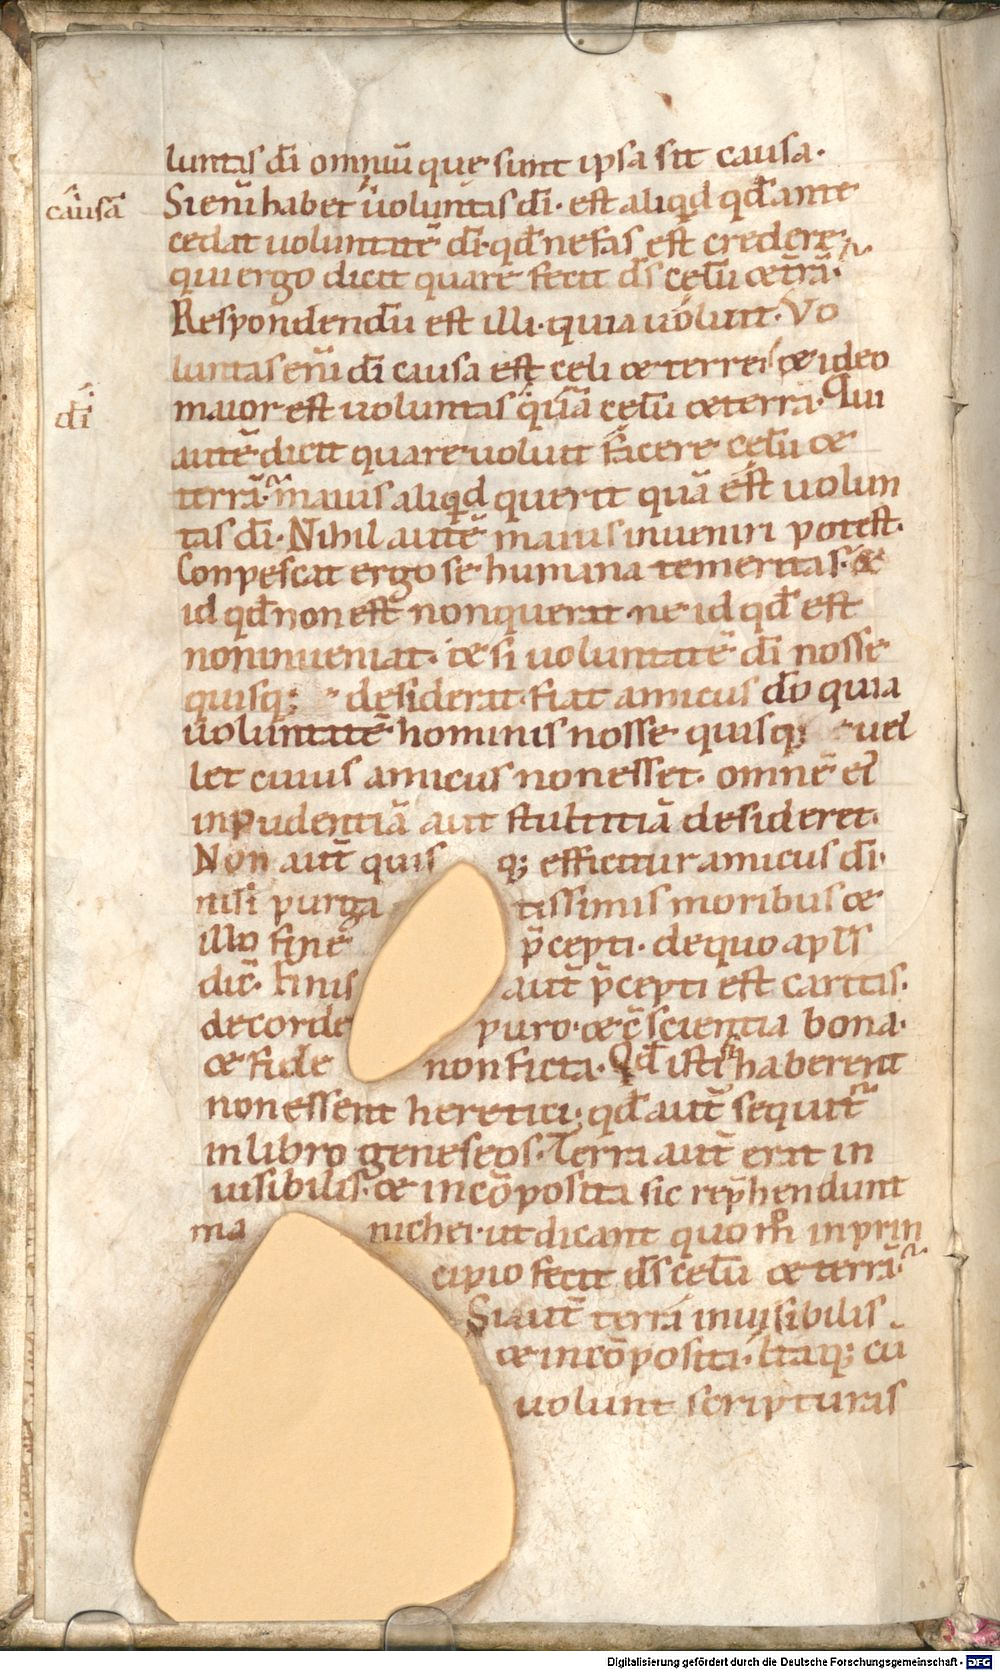 luntas dī omniū quę sunt ipsa sit causa·
causā
Si enī habet uoluntas dī· est aliqd qđ ante
cedat uoluntatē dī· qđ nefas est credere·
qui ergo dicit quare fecit dś celū & t̄rā·
Respondendū est illi· quia uoluit· Vo
luntas enī dī causa est celi & terre· & ideo
dī
maior est uoluntas quā celū & terra· Qui
autē dicit quare uoluit facere celū &
terrā· maius aliqd querit quā est uolun
tas dī· Nihil autē maius inueniri potest·
Conpescat ergo se humana temeritas· &
id qđ non est non querat· ne id qđ est
non inueniat· & si uoluntatē dī nosse
quisq; desiderat· fiat amicus dō quia
uoluntatē hominis nosse quisq; uel
let cuius amicus non esset· omnē ei
inpudentiā aut stultitiā desideret·
Non aut̄ quis q; efficitur amicus dī·
nisi purga tissimis moribus &
illo fine p̄cepti· de quo apłs
dic̄· Finis aut̄ p̄cepti est caritas·
de corde puro· & c̄scientia bona·
& fide non ficta· Qđ isti si haberent
non essent heretici; qđ aut̄ sequit̄
in libro geneseos· Terra aut̄ erat in
uisibilis· & incōposita sic rep̄hendunt
ma nichei· ut dicant quom̄ in prin
cipio fecit dś celū & terrā·
Si aut̄ terra inuisibilis
& incōposita· Itaq; cū
uolunt scripturas
Digitalisierung gefördert durch die Deutsche Forschungsgemeinschaft - DFG